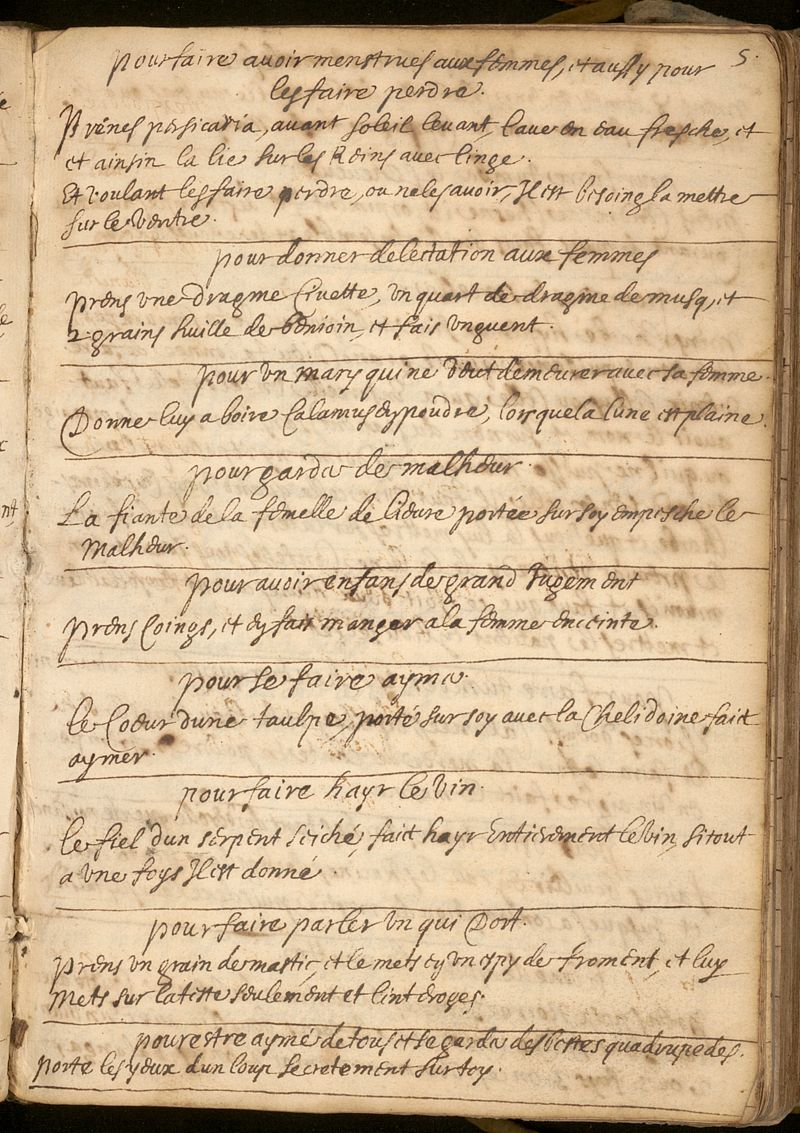 5.
pour faire avoir menstrues aux femmes, et aussy pour
les faire perdre.
Prenes persicaria, avant soleil levant lave en eau fresche, et
et ainsin la lie sur les Reins avec linge.
Et voulant les faire perdre, ou ne les avoir, Il est besoing la mettre
sur le ventre.
pour donner delectation aux femmes
prens une dragme Civette, un quart de dragme de musq, et
2 grains huille de benioin, et fais unguent.
pour un mary qui ne veut demeurer avec sa femme.
Donne luy a boire Calamus en poudre, lors que la lune est plaine.
pour garder de malheur.
La fiante de la femelle de lievre portée sur soy empesche le
Malheur.
pour avoir enfans de grand Jugement
prens Coings, et en fais manger a la femme enceinte.
pour se faire aymer.
le Coeur dune taulpe, porté sur soy avec la Chelidoine fait
aymer.
pour faire hayr le vin.
le fiel d'un serpent seiché, fait hayr Entierement le vin, si tout
a une foys Il est donné.
pour faire parler un qui Dort.
prens un grain de mastic, et le mets en un espy de froment, et luy
Mets sur la teste seulement et linteroges.
pour estre aymé de tous et se garder des bestes quadrupedes.
porte les yeux d'un loup secretement sur toy.